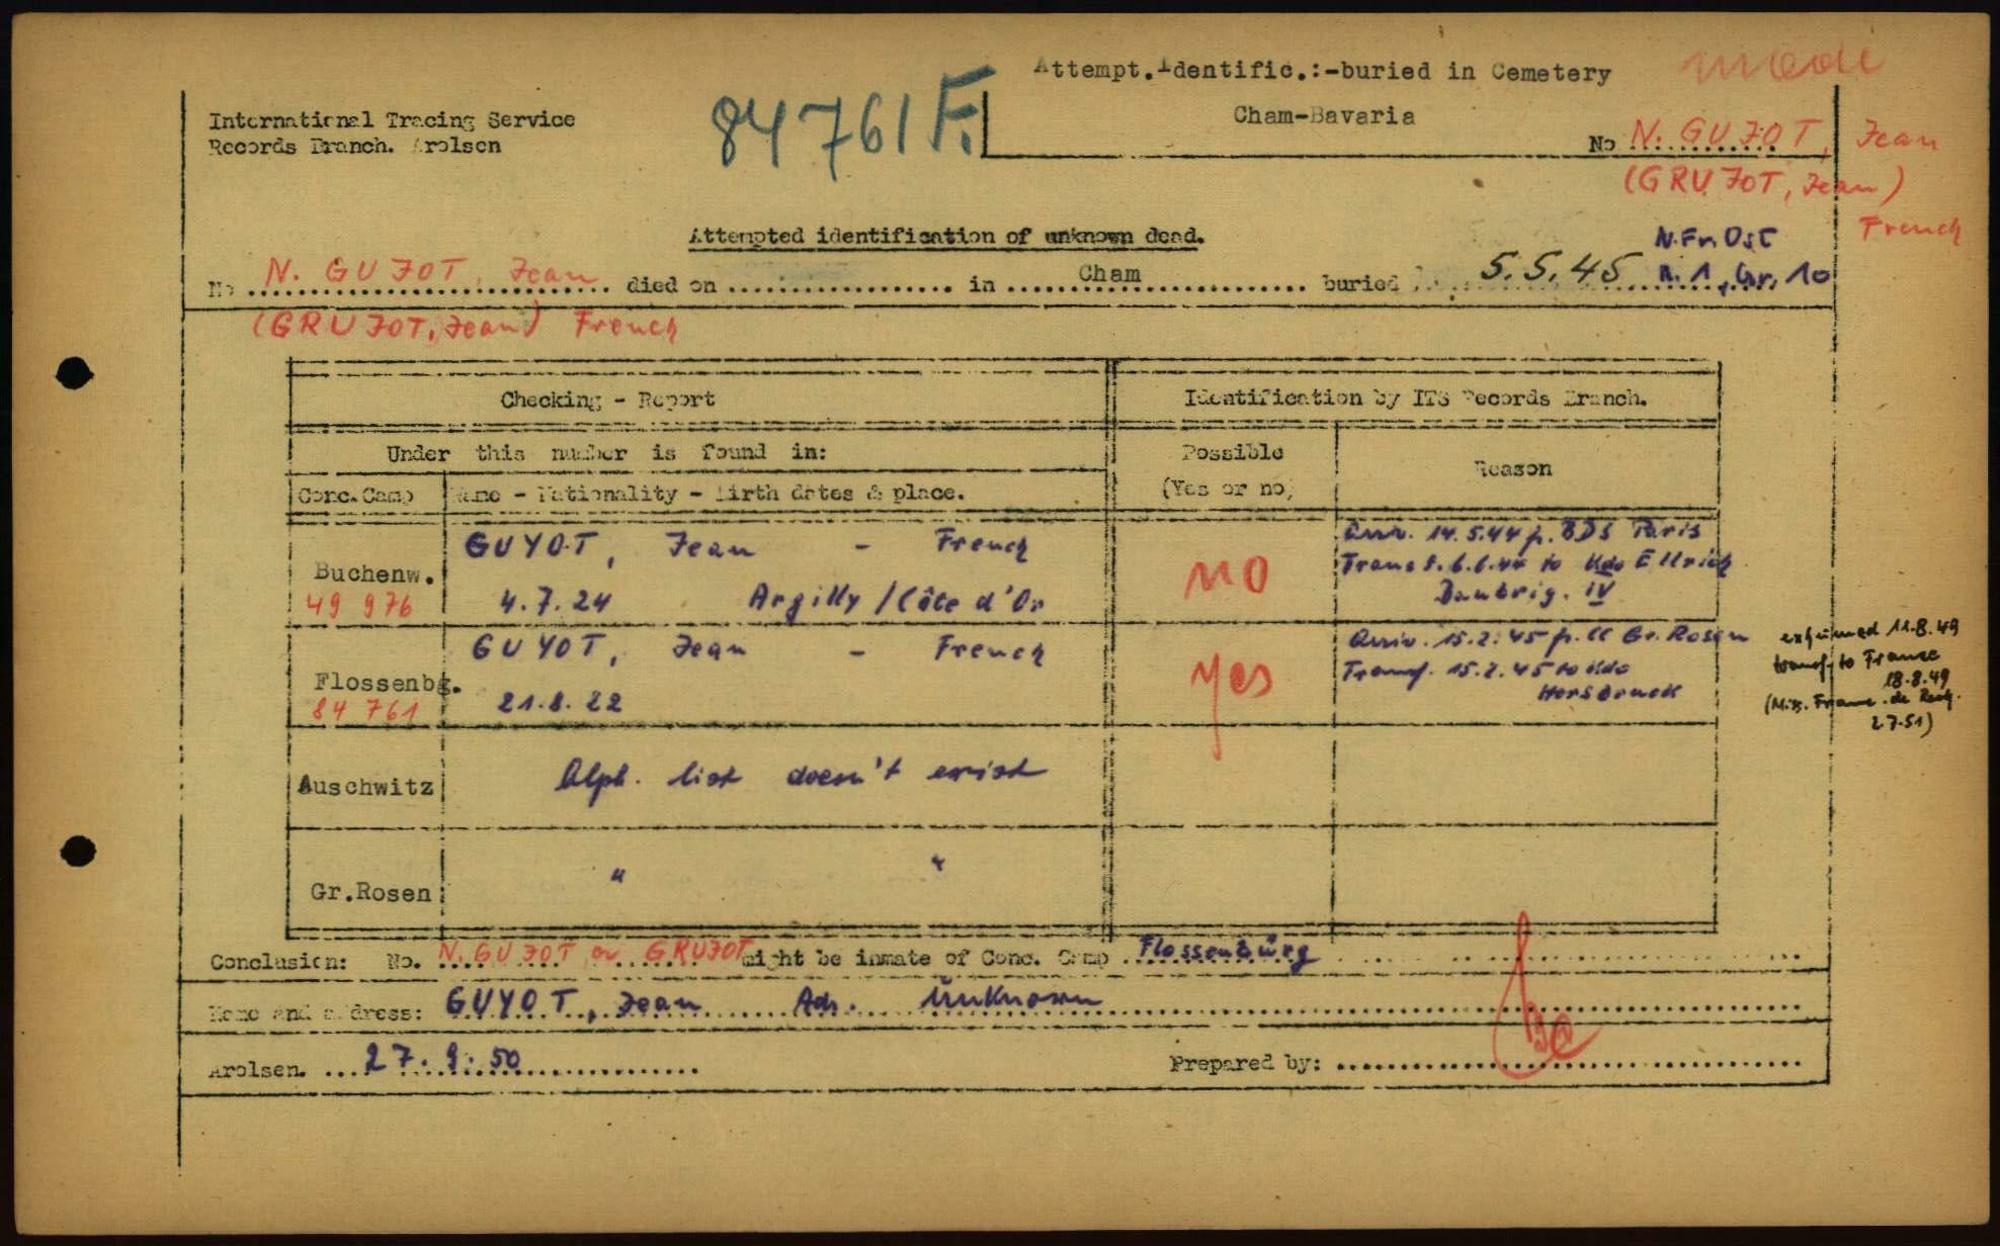 Attempt. Identific.:-buried in Cemetery
Cham-Bavaria
International Tracing Service
Records Branch. Arolsen
84761 F.
No N. GUJOT, Jean
(GRUJOT, Jean)
French
Attempted identification of unknown dead.
No N. GUJOT, Jean died on in Cham buried 5.5.45 N.Fr. Ost R. 1, Gr. 10
(GRUJOT, Jean) French
Checking - Report
Identification by ITS Records Branch.
Under this number is found in:
Possible
(Yes or no)
Reason
Conc.Camp
Name - Nationality - Birth dates & place.
Buchenw.
49 976
GUYOT, Jean - French
4.7.24 Argilly /Côte d'Or
NO
Arr. 14.5.44 p. BDS Paris
Transf. 6.6.44 to Kdo Ellrich
IV
Flossenbg.
84 761
GUYOT, Jean - French
21.8.22
Yes
Arriv. 15.2.45 p. CC Gr. Rosen
Transf. 15.2.45 to Kdo
Hersbruck
exhumed 11.8.49
transf. to France
18.8.49
(Miss. Franc. de Rech.
2.7.51)
Auschwitz
Alph. list doesn't exist
Gr.Rosen
" "
Conclusion: No. N. GUJOT or GRUJOT might be inmate of Conc. Camp Flossenbürg
Name and address: GUYOT, Jean Adr. Unknown
Arolsen. 27.9.50
Prepared by: